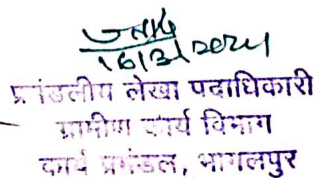 16/3/2024
प्रमंडलीय लेखा पदाधिकारी
ग्रामीण कार्य विभाग
कार्य प्रमंडल, भागलपुर